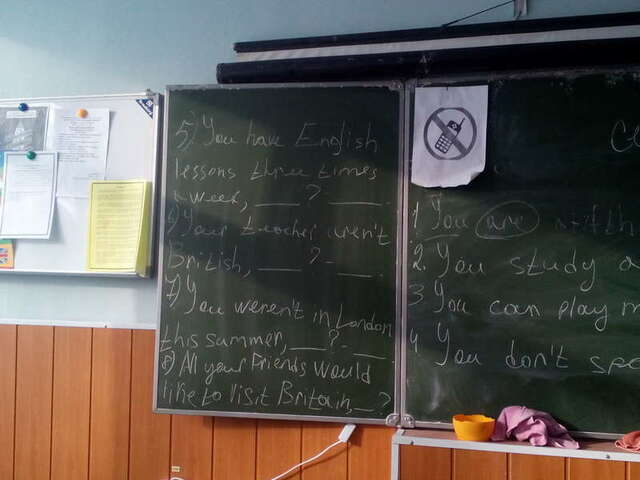 5) You have English
lessons three times
a week, ___ ? ___.
6) Your teacher aren't
British, ___ ? - ___.
7) You weren't in London
this summer, ___? - ___
8) All your Friends would
like to visit Britain, __?
1 You are
2. You study
3 You can play
4 You don't